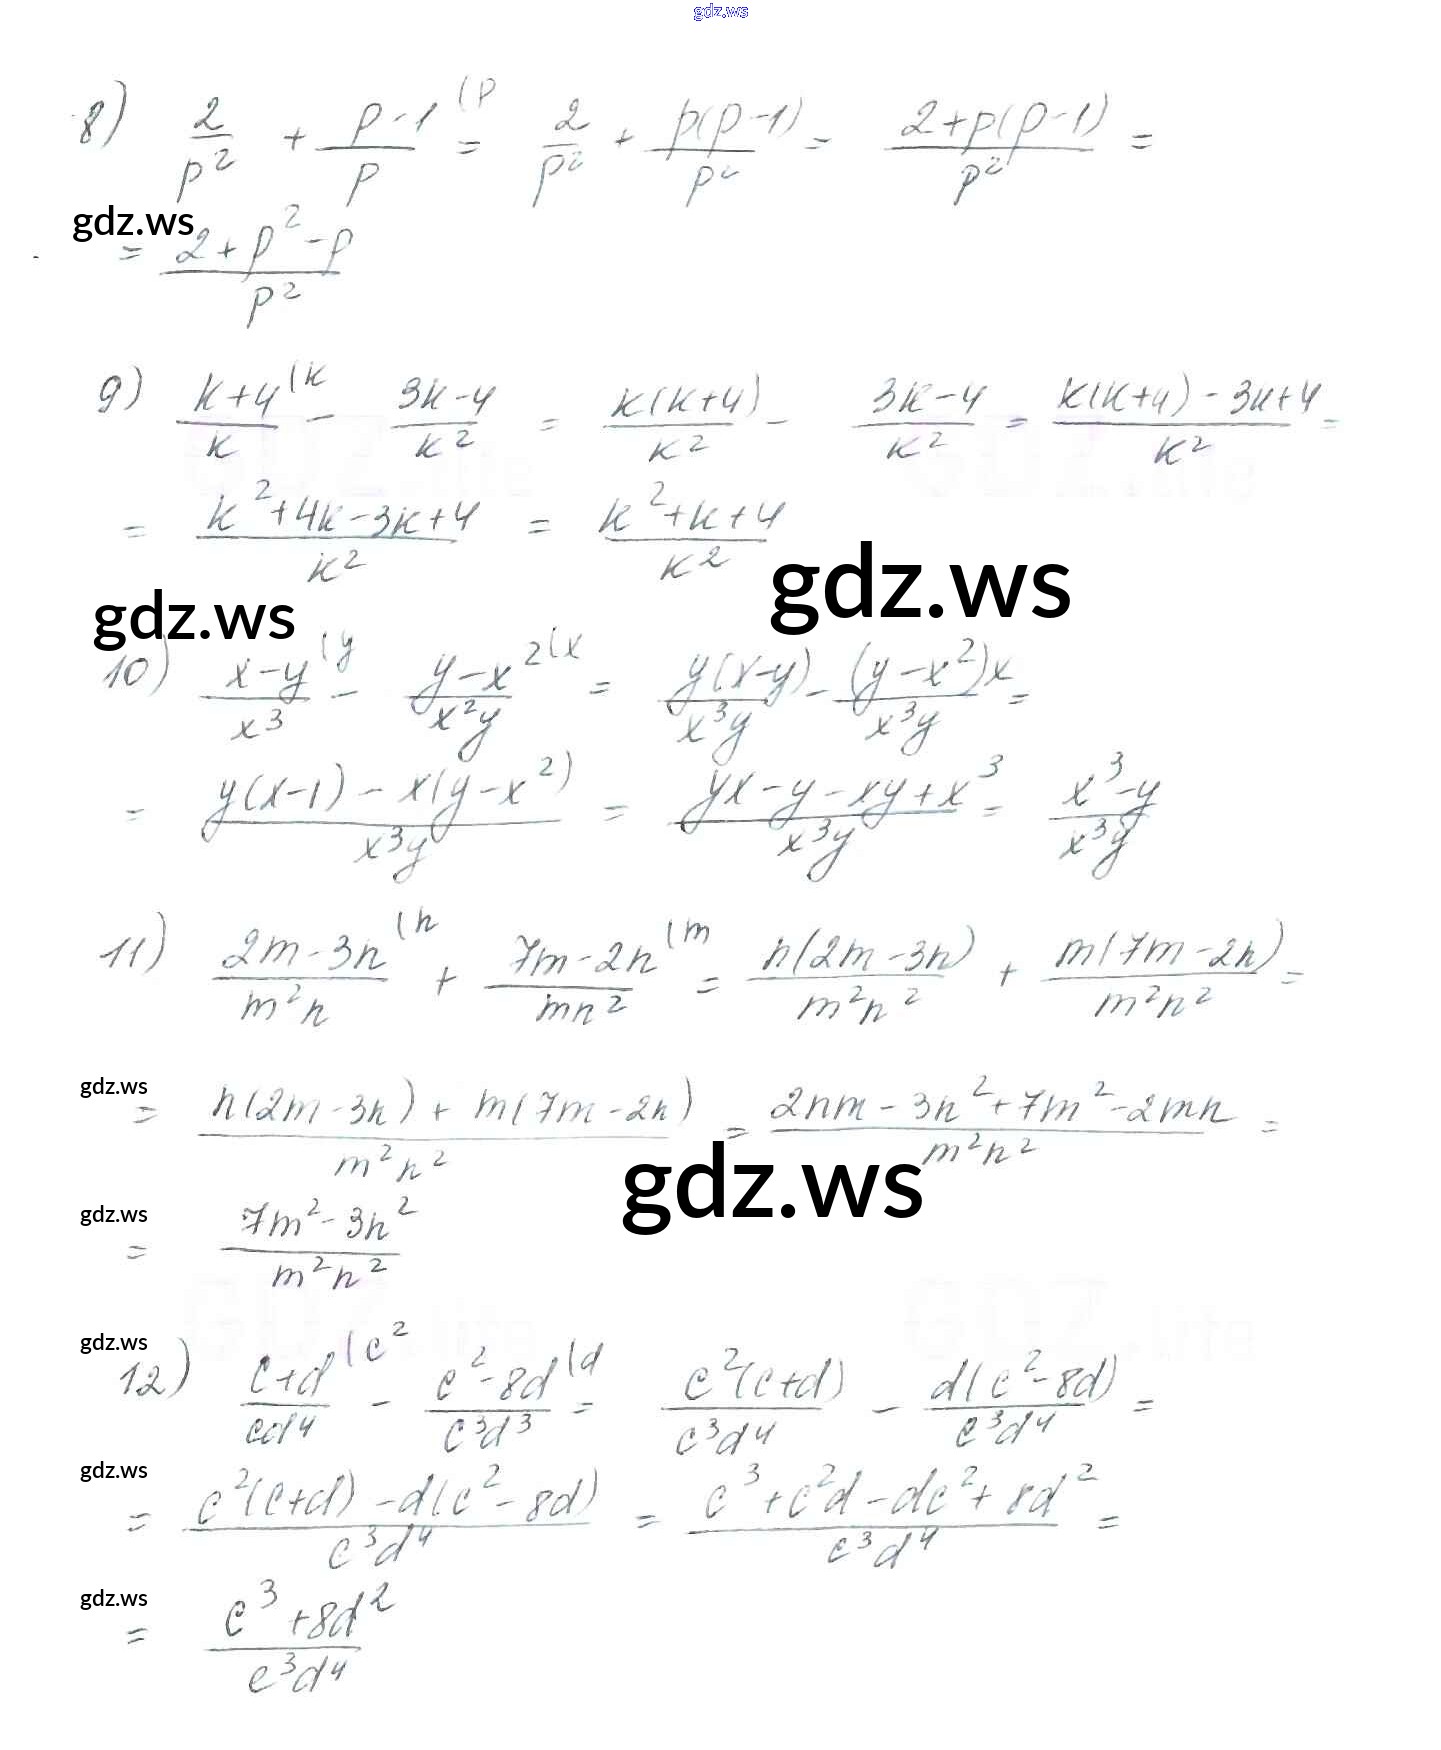 gdz.ws
8) 2/p² + (p-1)/p (p = 2/p² + p(p-1)/p² = (2+p(p-1))/p² =
gdz.ws
= (2+p²-p)/p²
9) (k+4)/k (k - (3k-4)/k² = k(k+4)/k² - (3k-4)/k² = (k(k+4)-3k+4)/k² =
= (k²+4k-3k+4)/k² = (k²+k+4)/k²
gdz.ws
gdz.ws
10) (x-y)/x³ (y - (y-x²)/x²y (x = y(x-y)/x³y - (y-x²)x/x³y =
= (y(x-1)-x(y-x²))/x³y = (yx-y-xy+x³)/x³y = (x³-y)/x³y
11) (2m-3n)/m²n (n + (7m-2n)/mn² (m = n(2m-3n)/m²n² + m(7m-2n)/m²n² =
gdz.ws
= (n(2m-3n)+m(7m-2n))/m²n² = (2nm-3n²+7m²-2mn)/m²n² =
gdz.ws
gdz.ws
= (7m²-3n²)/m²n²
gdz.ws
12) (c+d)/cd⁴ (c² - (c²-8d)/c³d³ (d = c²(c+d)/c³d⁴ - d(c²-8d)/c³d⁴ =
gdz.ws
= (c²(c+d)-d(c²-8d))/c³d⁴ = (c³+c²d-dc²+8d²)/c³d⁴ =
gdz.ws
= (c³+8d²)/c³d⁴